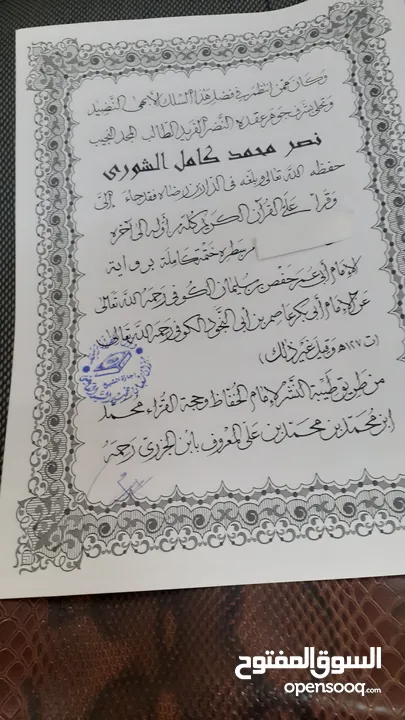 وكان ممن انتظم في فضل هذا السلك الأبهى النضيد
وتحلى بشرف جوهر عقده النضر الفريد الطالب المجد النجيب
نصر محمد كامل الشورى
حفظه الله تعالى وبلغه في الدارين رضاه فقد جاء إلي
وقرأ علي القرآن الكريم كله من أوله الى آخره
سطره ختمة كاملة برواية
الإمام أبي عمر حفص بن سليمان الكوفي رحمه الله تعالى
عن الإمام أبي بكر عاصم بن أبي النجود الكوفي رحمه الله تعالى
(ت ١٢٧ه‍ وقيل غير ذلك)
من طريق طيبة النشر لإمام الحفاظ وحجة القراء محمد
ابن محمد بن محمد بن علي المعروف بابن الجزري رحمه
السوق المفتوح
opensooq.com